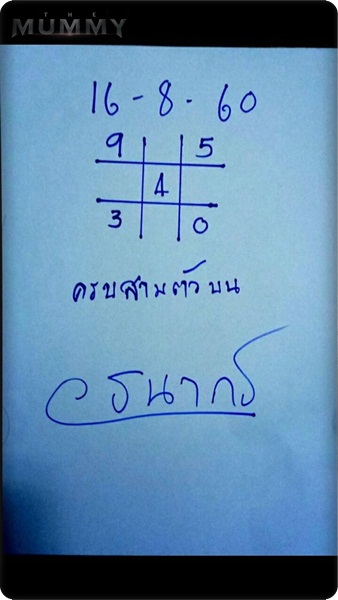 THE
MUMMY
16 - 8 - 60
9 5
4
3 0
ครบสามตัวบน
ธนากร